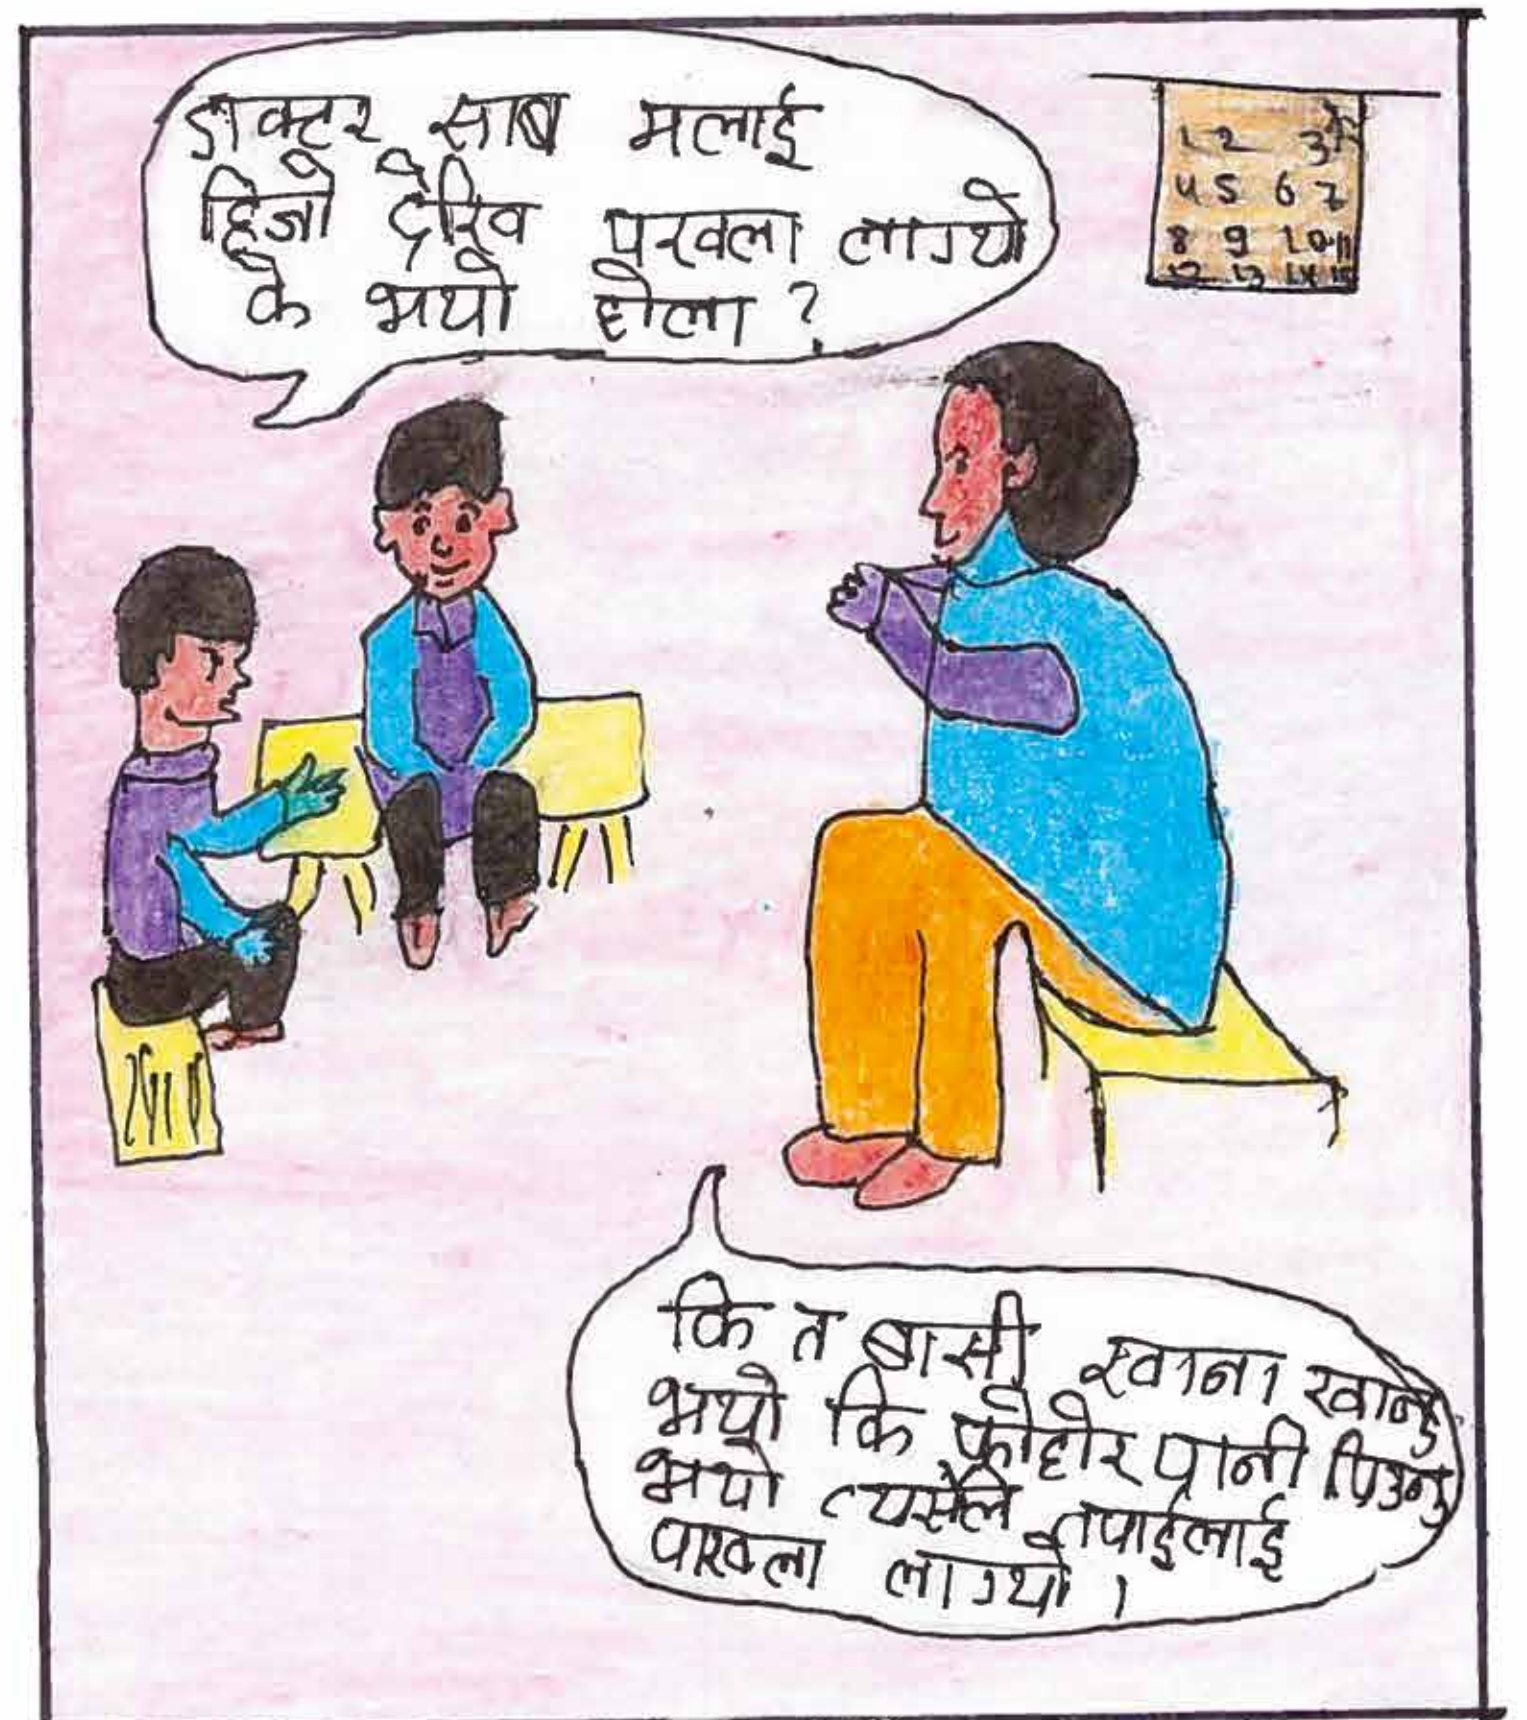 डाक्टर साब मलाई
हिजो देखि पखला लाग्यो
के भयो होला ?
1 2 3
4 5 6 7
8 9 10 11
12 13 14 15
कि त बासी खाना खानु
भयो कि फोहोर पानी पिउनु
भयो त्यसैले तपाईलाई
पाखला लाग्यो ।